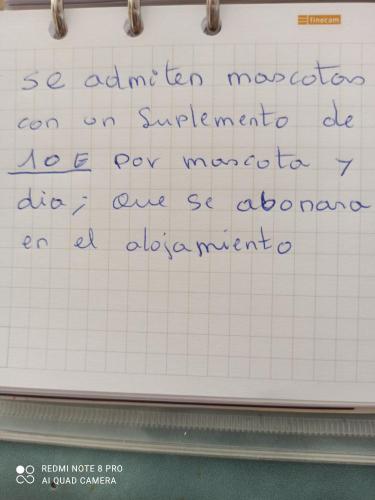 finocam
se admiten mascotas
con un suplemento de
10 € por mascota y
dia; que se abonara
en el alojamiento
REDMI NOTE 8 PRO
AI QUAD CAMERA